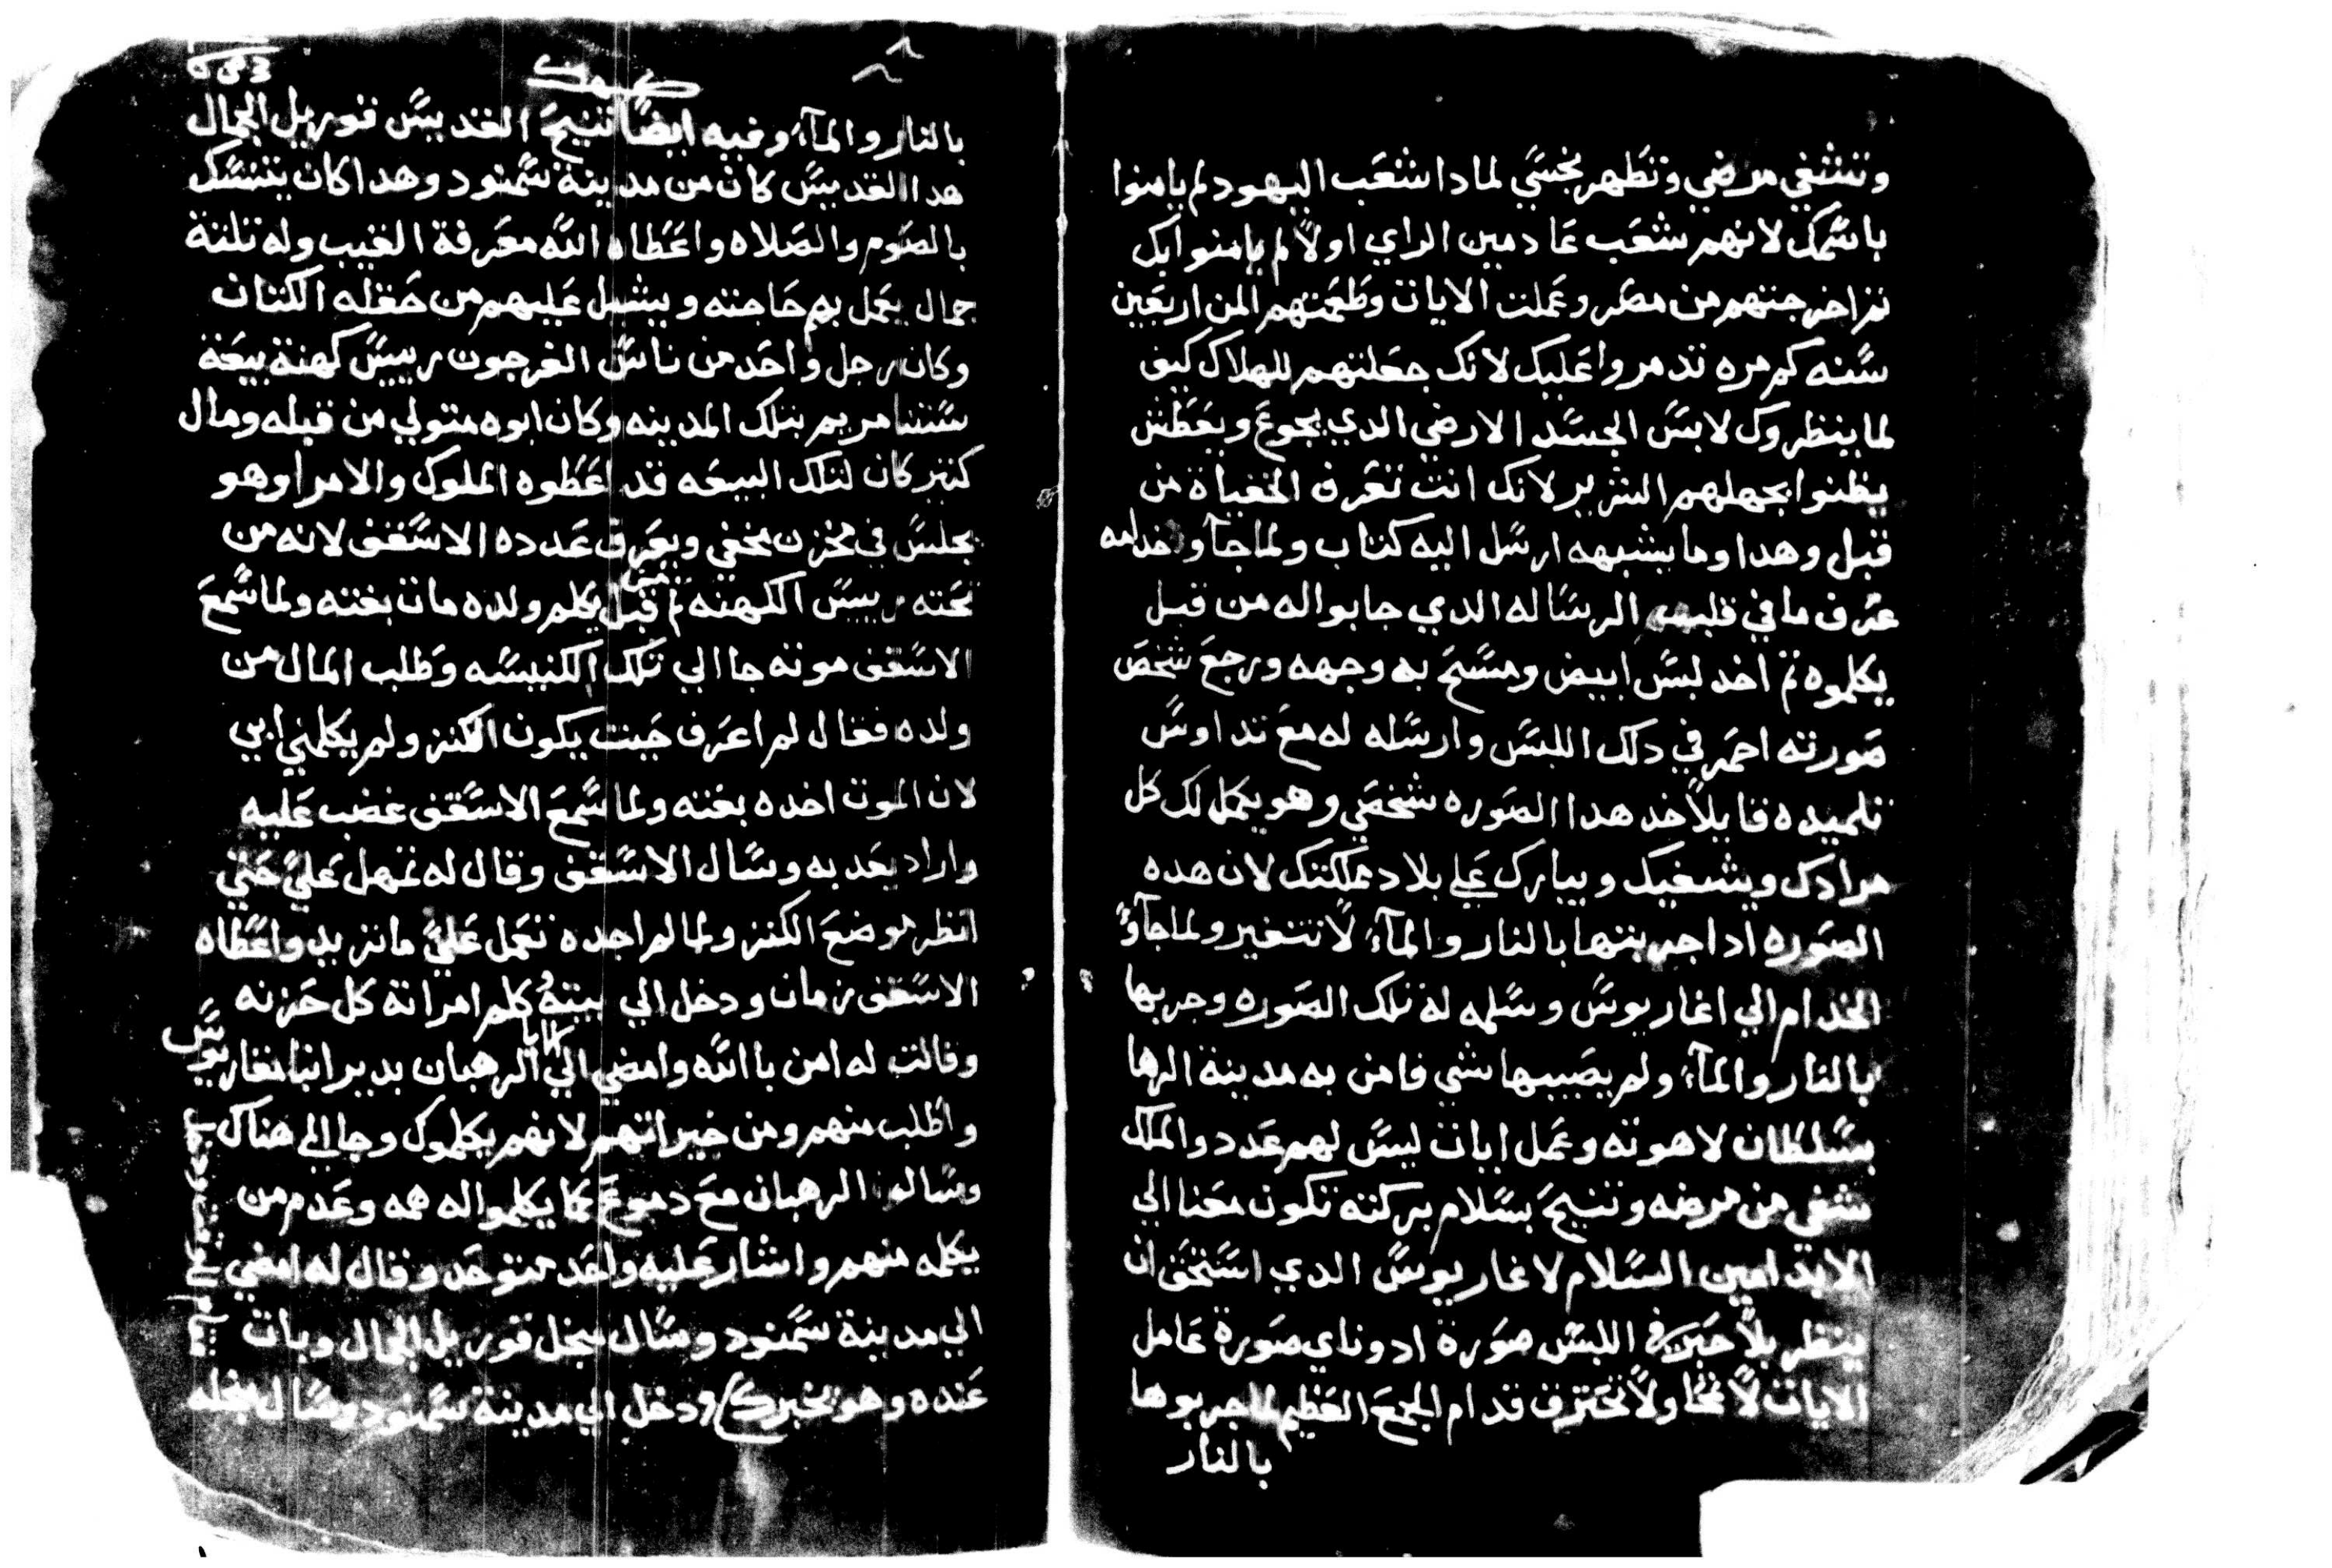 وتشفي مرضي وتطهر نجسي لمادا شعب اليهود لم يامنوا
باسمك لانهم شعب عادمين الراي اولاً لم يامنوا بك
تم اخرجتهم من مصر وعملت الايات وطعمتهم المن اربعين
سنه كم مره تدمروا عليك لانك جعلتهم للهلاك كيف
لما ينظروك لابس الجسد الارضي الدي يجوع ويعطش
يظنوا بجهلهم الشرير لانك انت تعرف الخفياة من
قبل وهدا وما يشبهه ارسل اليه كتاب ولما جآو خدامه
عرف ما في قلبهم الرساله الدي جابوا له من قبل
يكلموه تم اخد لبس ابيض ومسح به وجهه ورجع شخص
صورته احمر في دلك اللبس وارسله له مع تداوس
تلميده قايلاً خد هدا الصوره شخصي وهو يكمل لك كل
مرادك ويشفيك ويبارك علي بلاد مملكتك لان هده
الصوره ادا جربتها بالنار والمآء لا تتغير ولما جآوً
الخدام الي اغاريوس وسلمه له تلك الصوره وجربها
بالنار والمآء ولم يصيبها شي فامن به مدينة الرها
بسلطان لاهوته وعمل ايات ليس لهم عدد والملك
شفي من مرضه وتنيح بسلام بركته تكون معنا الي
الابد امين السلام لاغاريوس الدي استحق ان
ينظر بلا حبر في اللبس صورة ادوناي صورة عامل
الايات لا تمحا ولا تحترق قدام الجمع العظيم لما جربوها
بالنار
بالنار والمآء وفيه ايضاً تنيح القديس قوريل الجمال
هدا القديس كان من مدينة سمنود وهدا كان يتنسك
بالصوم والصلاه واعطاه الله معرفة الغيب وله تلتة
جمال يعمل بهم حاجته ويشيل عليهم من حقله الكتان
وكان رجل واحد من ناس الفرجون رييس كهنة بيعة
ستنا مريم بتلك المدينه وكان ابوه متولي من قبله ومال
كتير كان لتلك البيعه قد اعطوه الملوك والامرا وهو
يجلس في مخزن مخفي ويعرف عدده الاسقف لانه من
تحته رييس الكهنه تم قبل من يكلم ولده مات بغته ولما سمع
الاسقف موته جا الي تلك الكنيسه وطلب المال من
ولده فقال لم اعرف حيت يكون الكنز ولم يكلمني ابي
لان الموت اخده بغته ولما سمع الاسقف غضب عليه
واراد يعدبه وسال الاسقف وقال له تمهل عليً حتي
انظر موضع الكنز ولما لم اجده تعمل عليً ما تريد واعطاه
الاسقف زمان ودخل الي بيته وكلم امراته كل حزنه
وقالت له امن بالله وامضي الي الابا الرهبان بدير انبا نغاريوس
واطلب منهم ومن خيراتهم لانهم يكلموك وجا الي هناك
وسال الرهبان مع دموع كما يكلموا له همه وعدم من
يكلمه منهم واشار عليه واحد متوحد وقال له امضي
الي مدينة سمنود وسال عن قوريل الجمال وبات
عنده وهو يخبرك ودخل الي مدينة سمنود وسال